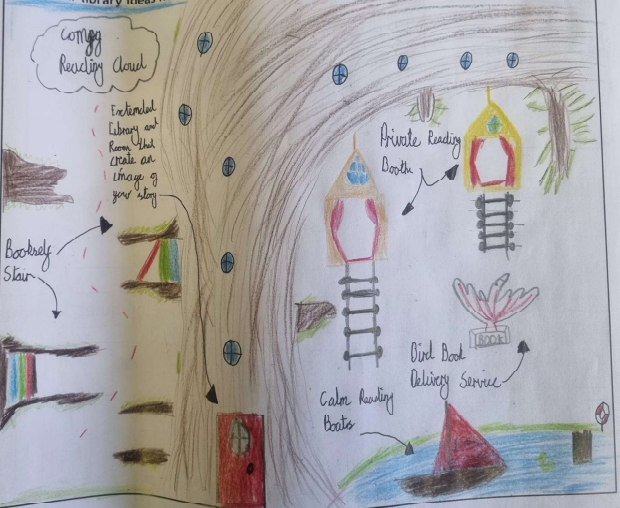 library ideas
Compy
Reading Cloud
Extended
Library and
Room that
create an
image of
your story
Private Reading
Booth
Bookself
Stair
Bird Book
Delivery Service
BOOK
Calm Reading
Boats